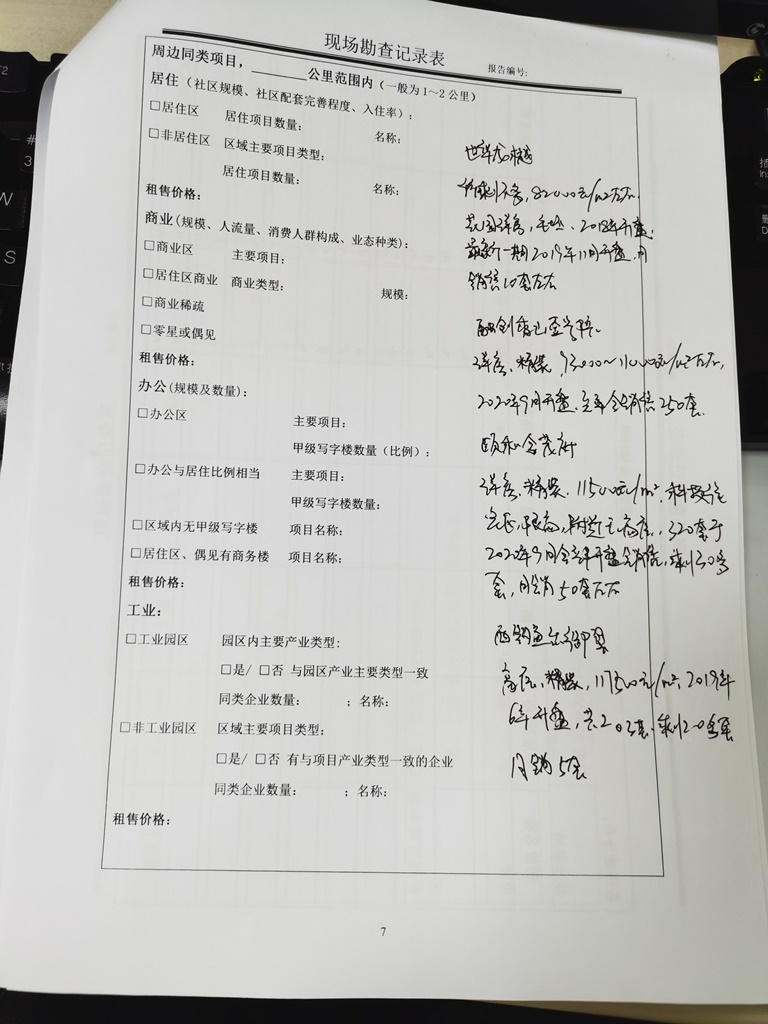 现场勘查记录表
报告编号:
周边同类项目，______公里范围内（一般为 1～2 公里）
居住（社区规模、社区配套完善程度、入住率）:
□居住区 居住项目数量: 名称:
□非居住区 区域主要项目类型:
居住项目数量: 名称:
租售价格:
商业(规模、人流量、消费人群构成、业态种类):
□商业区 主要项目:
□居住区商业 商业类型: 规模:
□商业稀疏
□零星或偶见
租售价格:
办公(规模及数量):
□办公区 主要项目:
甲级写字楼数量（比例）:
□办公与居住比例相当 主要项目:
甲级写字楼数量:
□区域内无甲级写字楼 项目名称:
□居住区、偶见有商务楼 项目名称:
租售价格:
工业:
□工业园区 园区内主要产业类型:
□是/ □否 与园区产业主要类型一致
同类企业数量: ；名称:
□非工业园区 区域主要项目类型:
□是/ □否 有与项目产业类型一致的企业
同类企业数量: ；名称:
租售价格:
世祥龙樾
82000元/m2左右
洋房，毛坯、2018年开盘，
最新一期2019年11月开盘，月
销售10套左右
洋房、精装、
2020年9月开盘、全年销售250套
颐和金茂府
洋房、精装、115000元/m²、科技住
320套于
2020年9月开盘
套，月销50套左右
精装、117500元/m²、2019年
6月开盘，共
月销5套
7